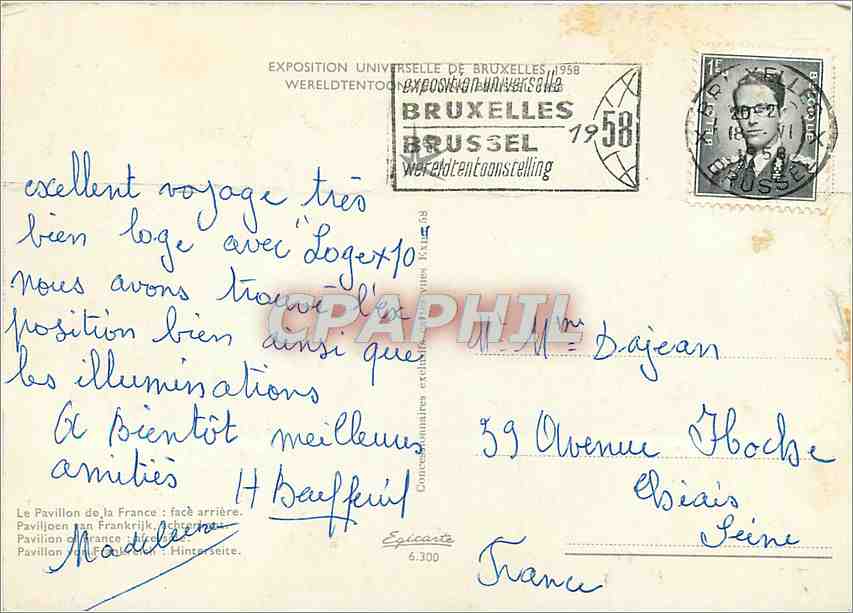 EXPOSITION UNIVERSELLE DE BRUXELLES 1958
WERELDTENTOON
exposition universelle
BRUXELLES
BRUSSEL
1958
wereldtentoonstelling
1F
BELGIQUE
BRUXELLES
20-21
18 VI
58
BRUSSEL
excellent voyage très
bien loge avec "Logexpo"
nous avons trouvé l'ex
position bien ainsi que
les illuminations
A Bientôt meilleures
amitiés H
Madeleine
CPAPHIL
Concessionnaires exclusifs Exp. 58
Mr Mme Dajean
59 Avenue Hoche
Thiais
Seine
France
Le Pavillon de la France : face arrière.
Paviljoen van Frankrijk, achterkant.
Pavilion of France :
Pavillon von Frankreich : Hinterseite.
Egicarte
6.300